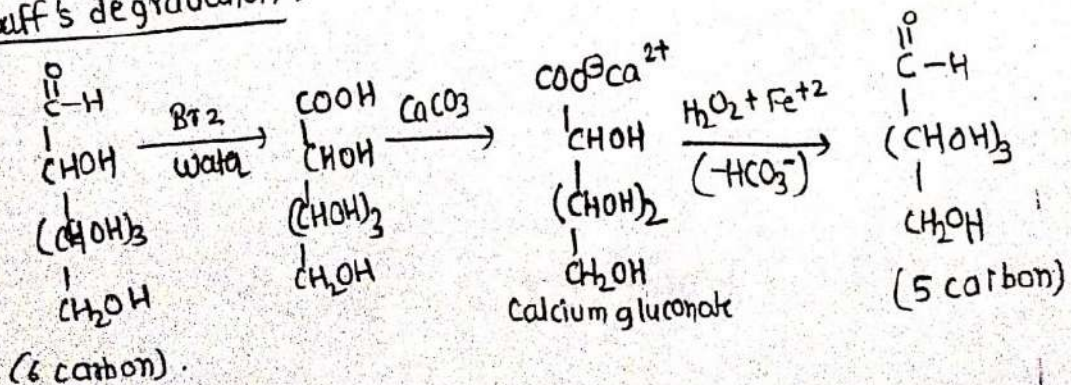 uff's degradation
O
||
C-H
|
CHOH
|
(CHOH)3
|
CH2OH
(6 carbon).
Br2
Water
COOH
|
CHOH
|
(CHOH)3
|
CH2OH
CaCO3
COO⊖Ca2+
|
CHOH
|
(CHOH)2
|
CH2OH
Calcium gluconate
H2O2 + Fe+2
(-HCO3-)
O
||
C-H
|
(CHOH)3
|
CH2OH
(5 carbon)